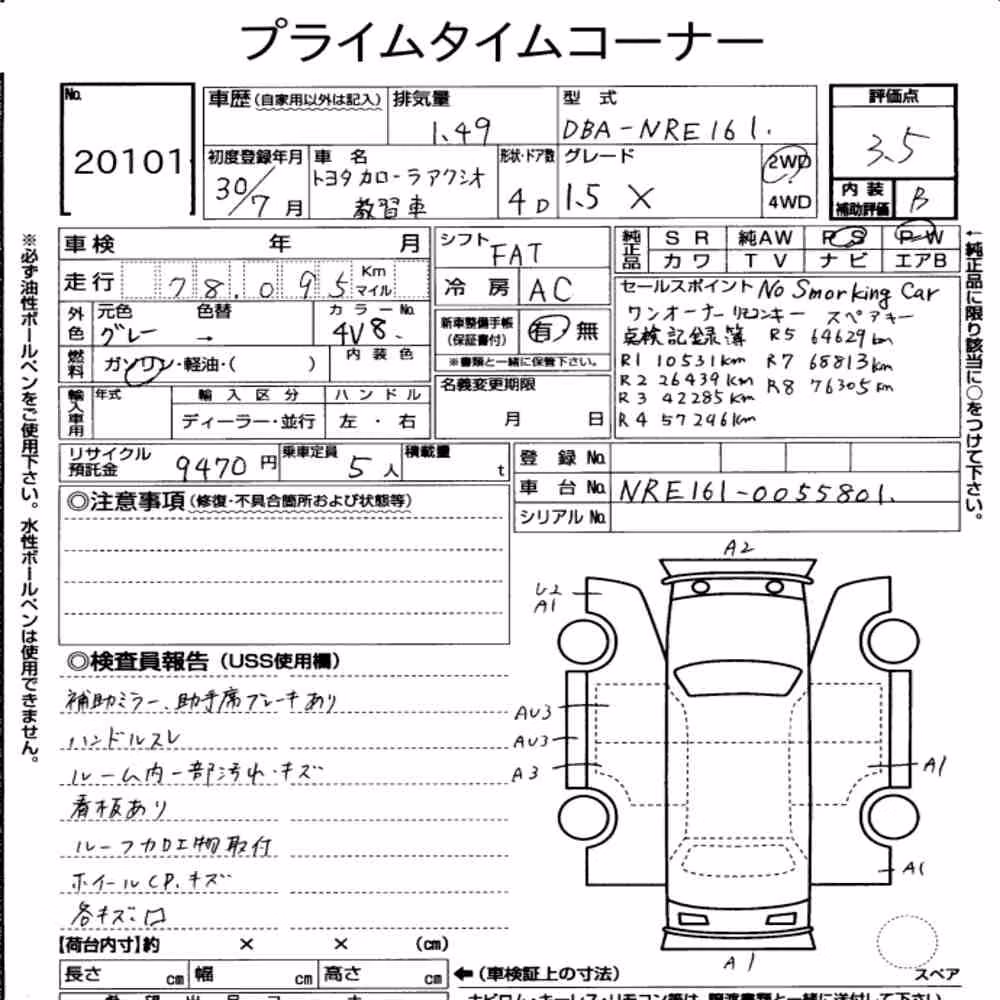 プライムタイムコーナー
No. 20101
車歴(自家用以外は記入) 排気量 1.49 型式 DBA-NRE161.
初度登録年月 30/7月 車名 トヨタカローラアクシオ 教習車 形状・ドア数 4D グレード 1.5 X 2WD 4WD
評価点 3.5
内装補助評価 B
※必ず油性ボールペンをご使用下さい。水性ボールペンは使用できません。
車検 年 月
走行 78.095 Km マイル
外色 元色 グレー 色替 → カラーNo. 4V8.
燃料 ガソリン・軽油・( ) 内装色
輸入車用 年式 輸入区分 ディーラー・並行 ハンドル 左・右
シフト FAT
冷房 AC
新車整備手帳(保証書付) 有 無
※書類と一緒に保管下さい。
名義変更期限 月 日
純正品 SR 純AW PS PW
カワ TV ナビ エアB
←純正品に限り該当に○をつけて下さい。
セールスポイント No Smorking Car
ワンオーナー リモコンキー スペアキー
点検記録簿 R5 64629km
R1 10531km R7 68813km
R2 26439km R8 76305km
R3 42285km
R4 57296km
リサイクル預託金 9470円 乗車定員 5人 積載量 t
登録No.
車台No. NRE161-0055801.
シリアルNo.
◎注意事項(修復・不具合箇所および状態等)
◎検査員報告(USS使用欄)
補助ミラー、助手席ブレーキあり
ハンドルスレ
ルーム内一部汚れ・キズ
看板あり
ルーフカロエ物取付
ホイールCP.キズ
各キズ凹
A2
A1
AU3
AU3
A3
A1
A1
A1
スペア
【荷台内寸】約 × × (cm)
長さ cm 幅 cm 高さ cm ←(車検証上の寸法)